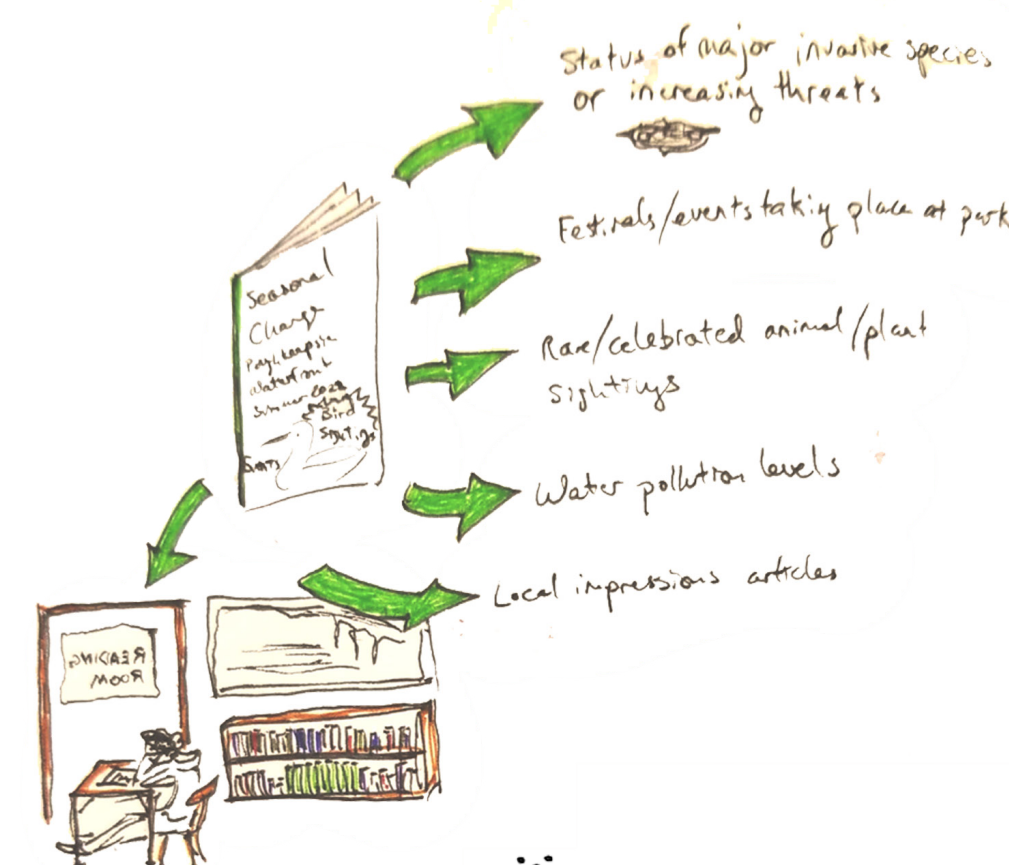 Status of major invasive species
or increasing threats
Festivals/events taking place at park
Rare/celebrated animal/plant
sightings
Water pollution levels
Local impressions articles
Seasonal
Change
Poughkeepsie
Waterfront
Summer
Bird
Sightings
READING
ROOM